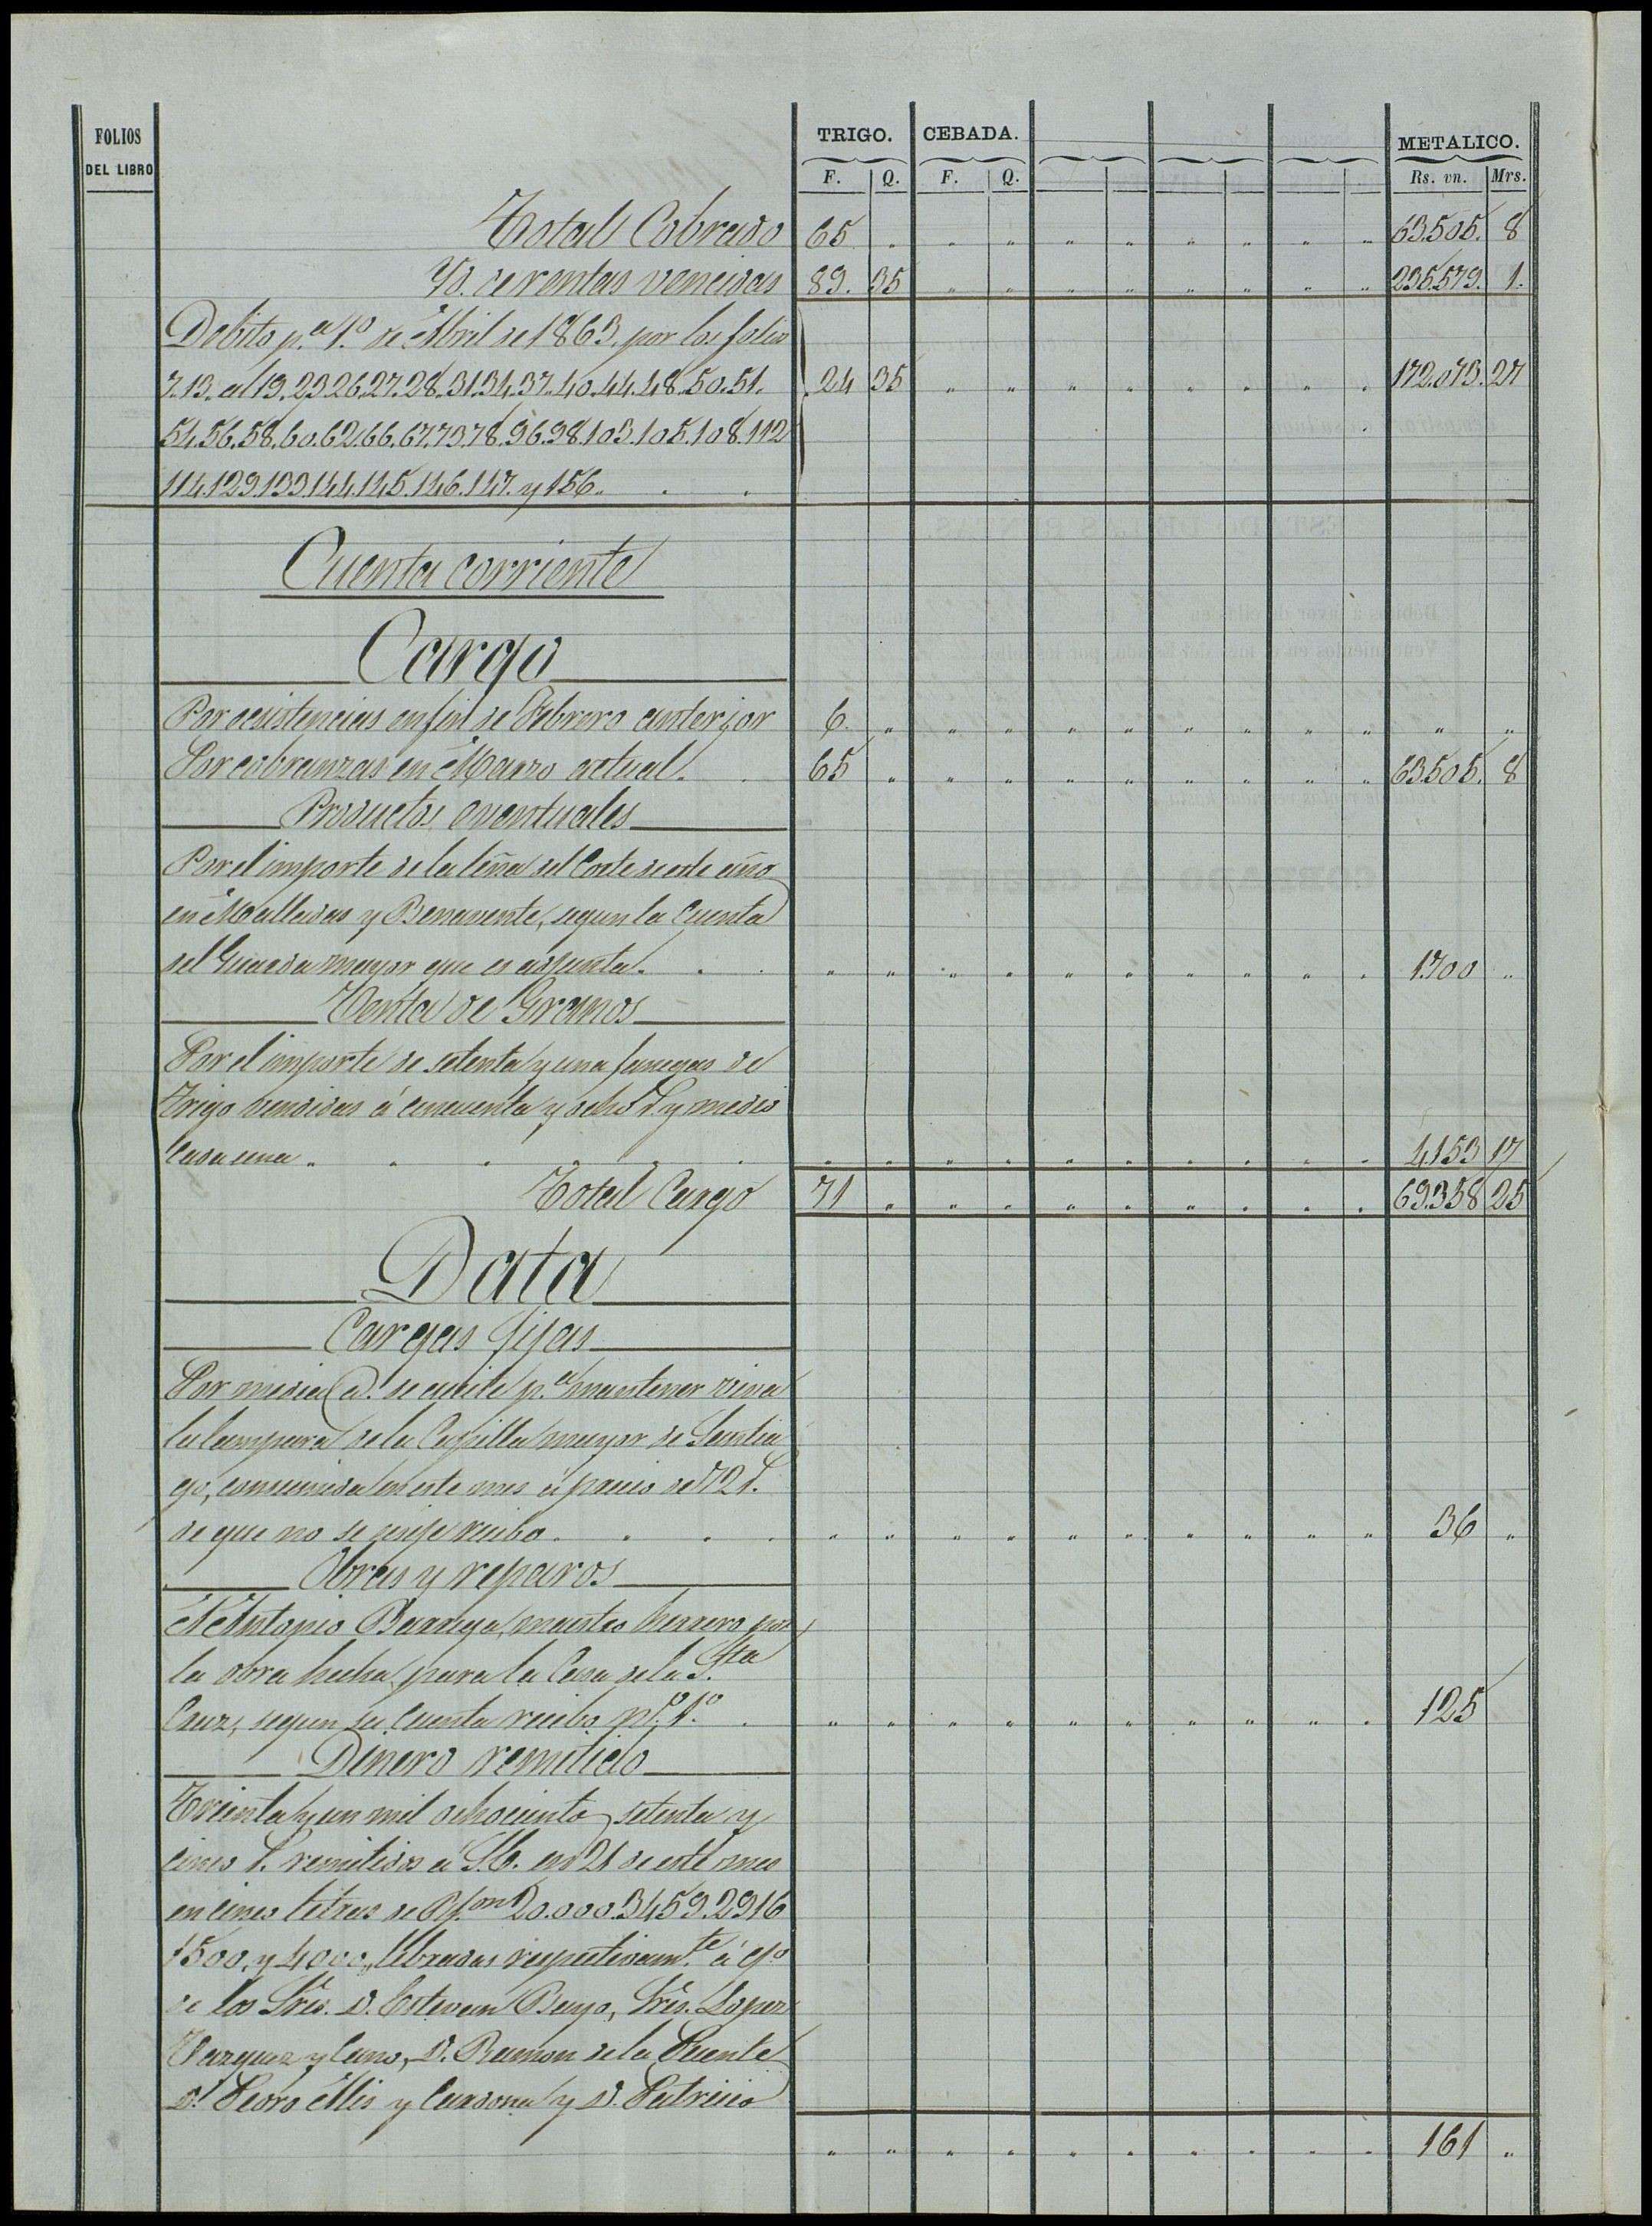 FOLIOS DEL LIBRO TRIGO. CEBADA. METALICO.
F. Q. F. Q. Rs. vn. Mrs.
Total Cobrado 65 " " " " " " " " " 63.505. 8
Yd. de rentas vencidas 89. 35 " " " " " " " " 235.579. 1.
Debito p.ª 1.º de Abril de 1863, por los folios
7. 13. al 19. 23. 26. 27. 28. 31. 34. 37. 40. 44. 48. 50. 51. 24 35 " " " " " " " " 172.073. 27
54. 56. 58. 60. 62. 66. 67. 73. 78. 96. 98. 103. 105. 108. 112
114. 129. 139. 144. 145. 146. 147. y 156.
Cuenta corriente
Cargo
Por ecsistencias en fin de Febrero anterior 6. " " " " " " " " " " "
Por cobranzas en Marzo actual. 65 " " " " " " " " " 63.505. 8
Productos eventuales
Por el importe de la leña del Corte de este año
en Malladas y Benavente, segun la Cuenta
del Guarda mayor que es adjunta. " " " " " " " " " " 1.700 "
Venta de Granos
Por el importe de setenta y una fanegas de
Trigo vendidas á cincuenta y ocho r.s y medio
Cada una " " " " " " " " " " 4.153 17
Total Cargo 71 " " " " " " " " " 69.358 25
Data
Cargas fijas
Por media @. de aceite p.ª mantener viva
la lampara de la Capilla mayor de Santia
go, consumida en este mes á precio de 72 r.s
de que no se ecsije recibo. " " " " " " " " " " 36 "
Obras y reparos
A Antonio Barriga, maestro herrero por
la obra hecha para la Casa de la S.ta
Cruz, segun su Cuenta recibo n.º 1.º " " " " " " " " " " 125
Dinero remitido
Treinta y un mil ochociento setenta y
cinco r.s remitidos á S.E. en 21 de este mes
en cinco letras de R.s vn 20.000. 3459. 2916
1500, y 4000, libradas respectivam.te á c/o
de los Sres. D. Estevan Bayo, Sres. Lopez
Vazquez y Cano, D. Ramon de la Puente
D. Pedro Alis y Cardona y D. Patricio
" " " " " " " " " " 161 "